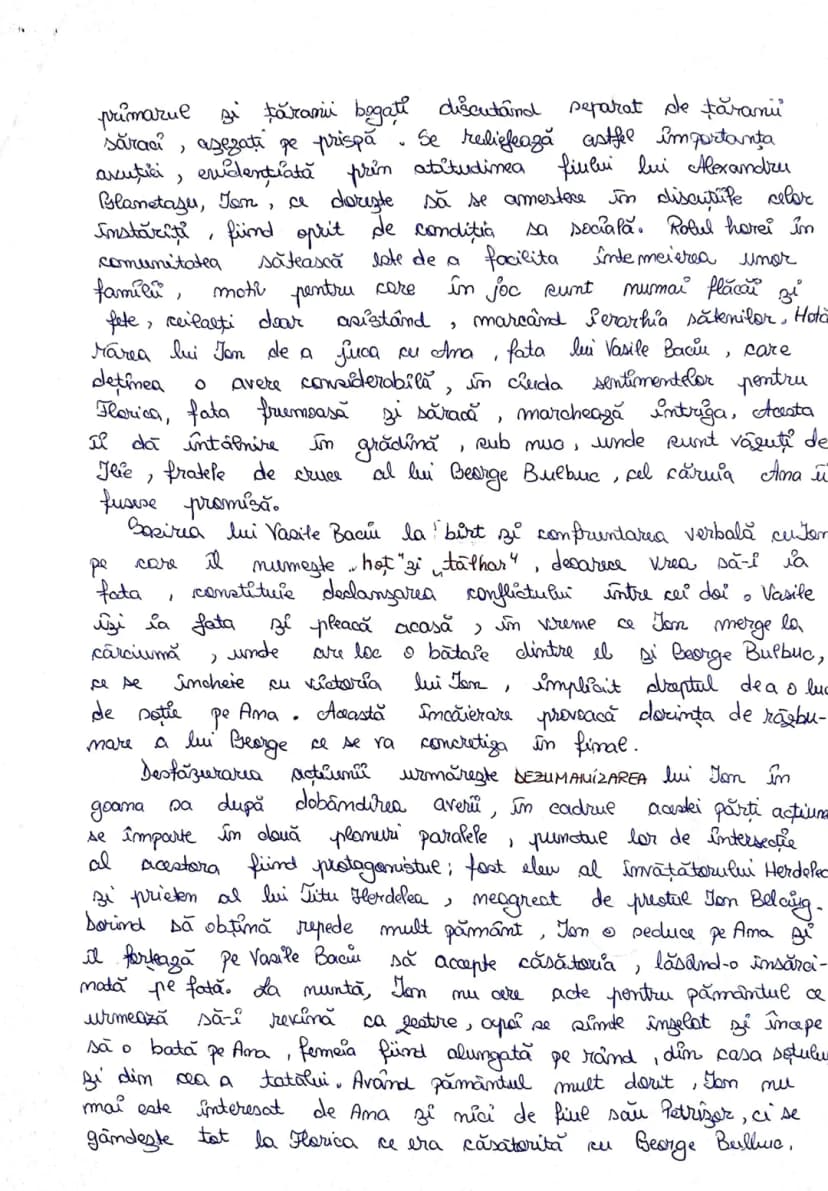 primarul și țăranii bogați discutând separat de țăranii
săraci, așezați pe prispă. Se reliefează astfel importanța
avuției, evidențiată prin atitudinea fiului lui Alexandru
Glanetașu, Ion, ce dorește să se amestece în discuțiile celor
înstăriți, fiind oprit de condiția sa socială. Rolul horei în
comunitatea sătească este de a facilita întemeierea unor
familii, motiv pentru care în joc sunt numai flăcăi și
fete, ceilalți doar asistând, marcând ierarhia sătenilor. Hotă
rârea lui Ion de a juca cu Ana, fata lui Vasile Baciu, care
deținea o avere considerabilă, în ciuda sentimentelor pentru
Florica, fata frumoasă și săracă, marchează intriga. Acesta
îi dă întâlnire în grădină, sub nuc, unde sunt văzuți de
Ilie, fratele de cruce al lui George Bulbuc, cel căruia Ana îi
fusese promisă.
Sosirea lui Vasile Baciu la birt și confruntarea verbală cu Ion
pe care îl numește „hoț" și „tâlhar", deoarece vrea să-i ia
fata, constituie declanșarea conflictului între cei doi. Vasile
își ia fata și pleacă acasă, în vreme ce Ion merge la
cârciumă, unde are loc o bătaie dintre el și George Bulbuc,
ce se încheie cu victoria lui Ion, implicit dreptul de a o lua
de soție pe Ana. Această încăierare provoacă dorința de răzbu-
nare a lui George ce se va concretiza în final.
Desfășurarea acțiunii urmărește DEZUMANIZAREA lui Ion în
goana sa după dobândirea averii, în cadrul acestei părți acțiuna
se împarte în două planuri paralele, punctul lor de intersecție
al acestora fiind protagonistul; fost elev al învățătorului Herdelea
și prieten al lui Titu Herdelea, neagreat de preotul Ion Belciug.
Dorind să obțină repede mult pământ, Ion o seduce pe Ana și
îl forțează pe Vasile Baciu să accepte căsătoria, lăsând-o însărci-
nată pe fată. La nuntă, Ion nu cere acte pentru pământul ce
urmează să-i revină ca zestre, apoi se simte înșelat și începe
să o bată pe Ana, femeia fiind alungată pe rând, din casa soțului
și din cea a tatălui. Având pământul mult dorit, Ion nu
mai este interesat de Ana și nici de fiul său Petrișor, ci se
gândește tot la Florica ce era căsătorită cu George Bulbuc.